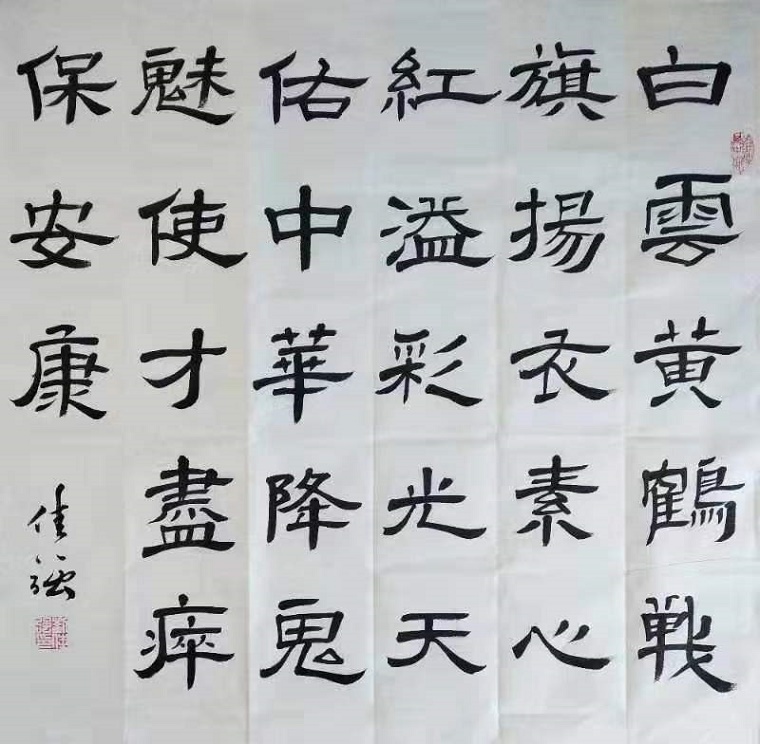 白雲黄鶴戰
旗揚衣素心
紅溢彩光天
佑中華降鬼
魅使才盡瘁
保安康
佳